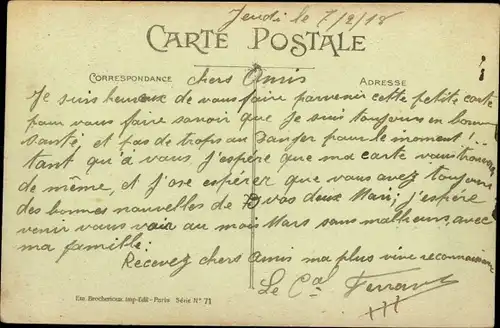 Jeudi le 7/2/18
CARTE POSTALE
CORRESPONDANCE
ADRESSE
chers Amis
Je suis heureux de vous faire parvenir cette petite carte
pour vous faire savoir que Je suis toujours en bonne
santé, et pas de trops au Danger pour le moment!
tant qu'à vous, j'espére que ma carte vous trouvera
de même, et j'ose espérer que vous avez toujours
des bonnes nouvelles de vos deux Mari, j'espére
venir vous voir au mois Mars sans malheurs, avec
ma famille.
Recevez chers Amis ma plus vive reconnaissance
Le Cal Ferrand
Em. Brocherioux Imp-Edit - Paris Série N° 71